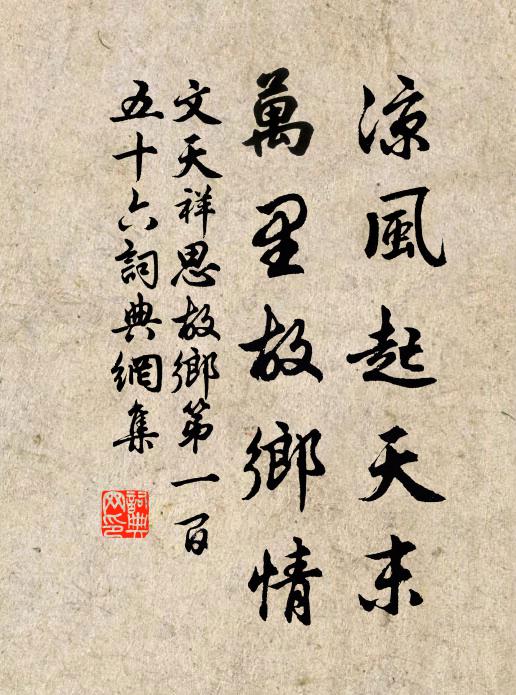 涼風起天末
萬里故鄉情
文天祥思故鄉第一百
五十六詞典網集
詞典
网印